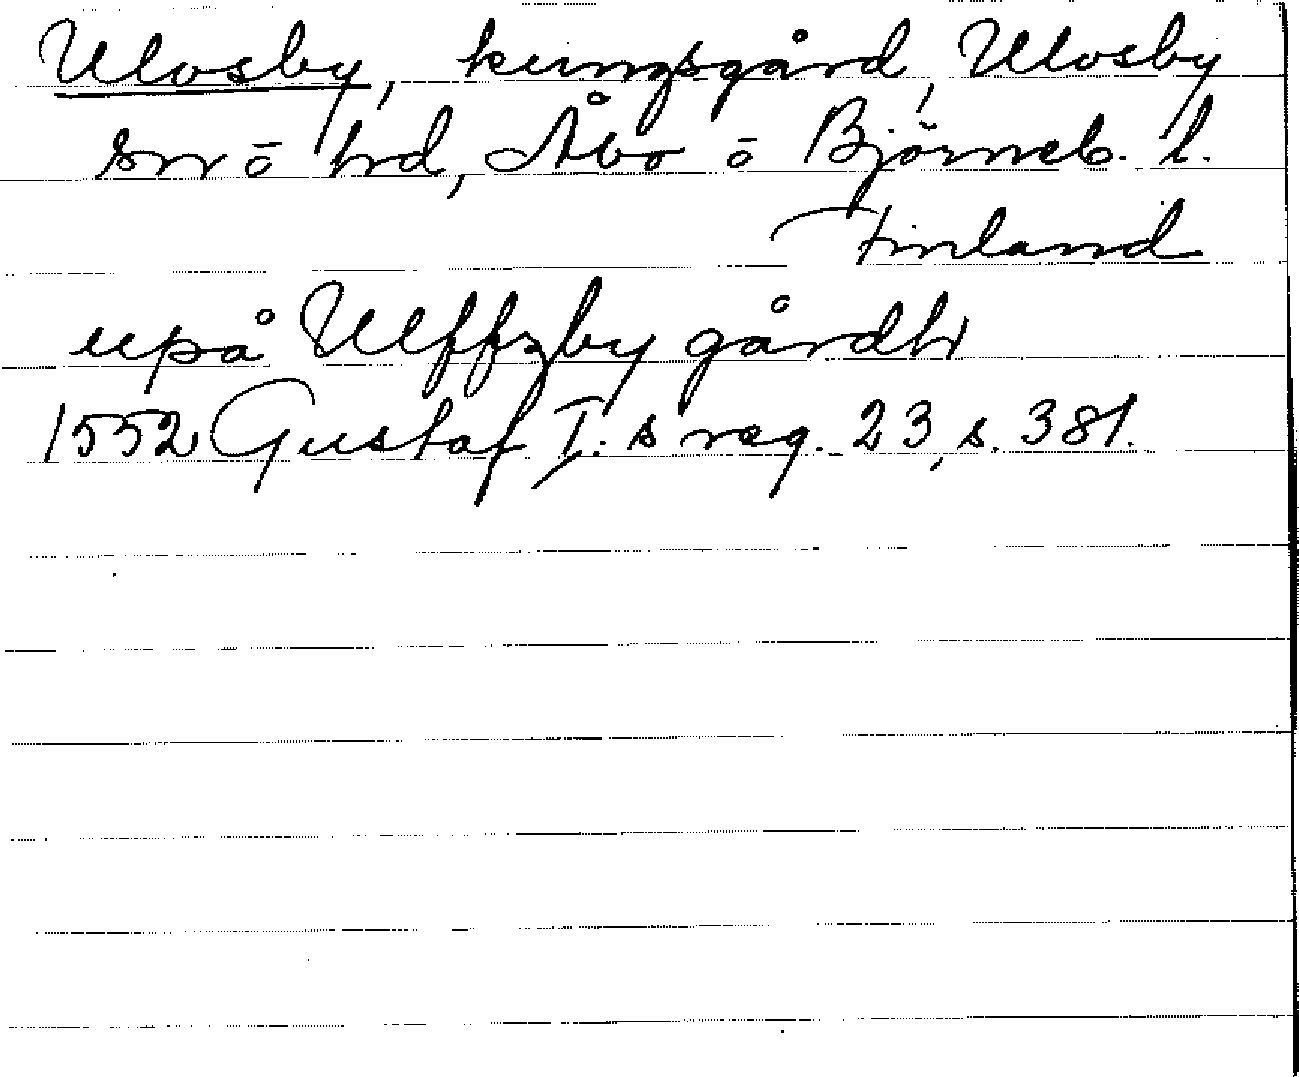 Ulvsby, kungsgård, Ulvsby
sn ō hd, Åbo ō Björneb. l.
Finland
upå Ulffzby gårdh
1552 Gustaf I:s reg. 23, s. 381.